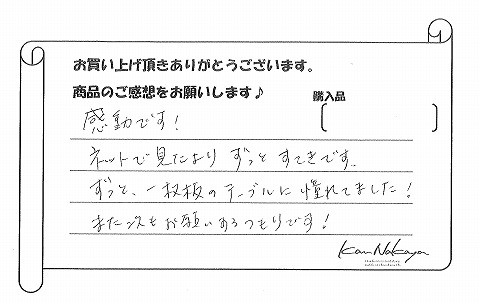 お買い上げ頂きありがとうございます。
商品のご感想をお願いします♪
購入品
感動です！
ネットで見たより ずっと すてきです。
ずっと、一枚板のテーブルに憧れてました！
また次もお願いするつもりです！
Kan Nakaya